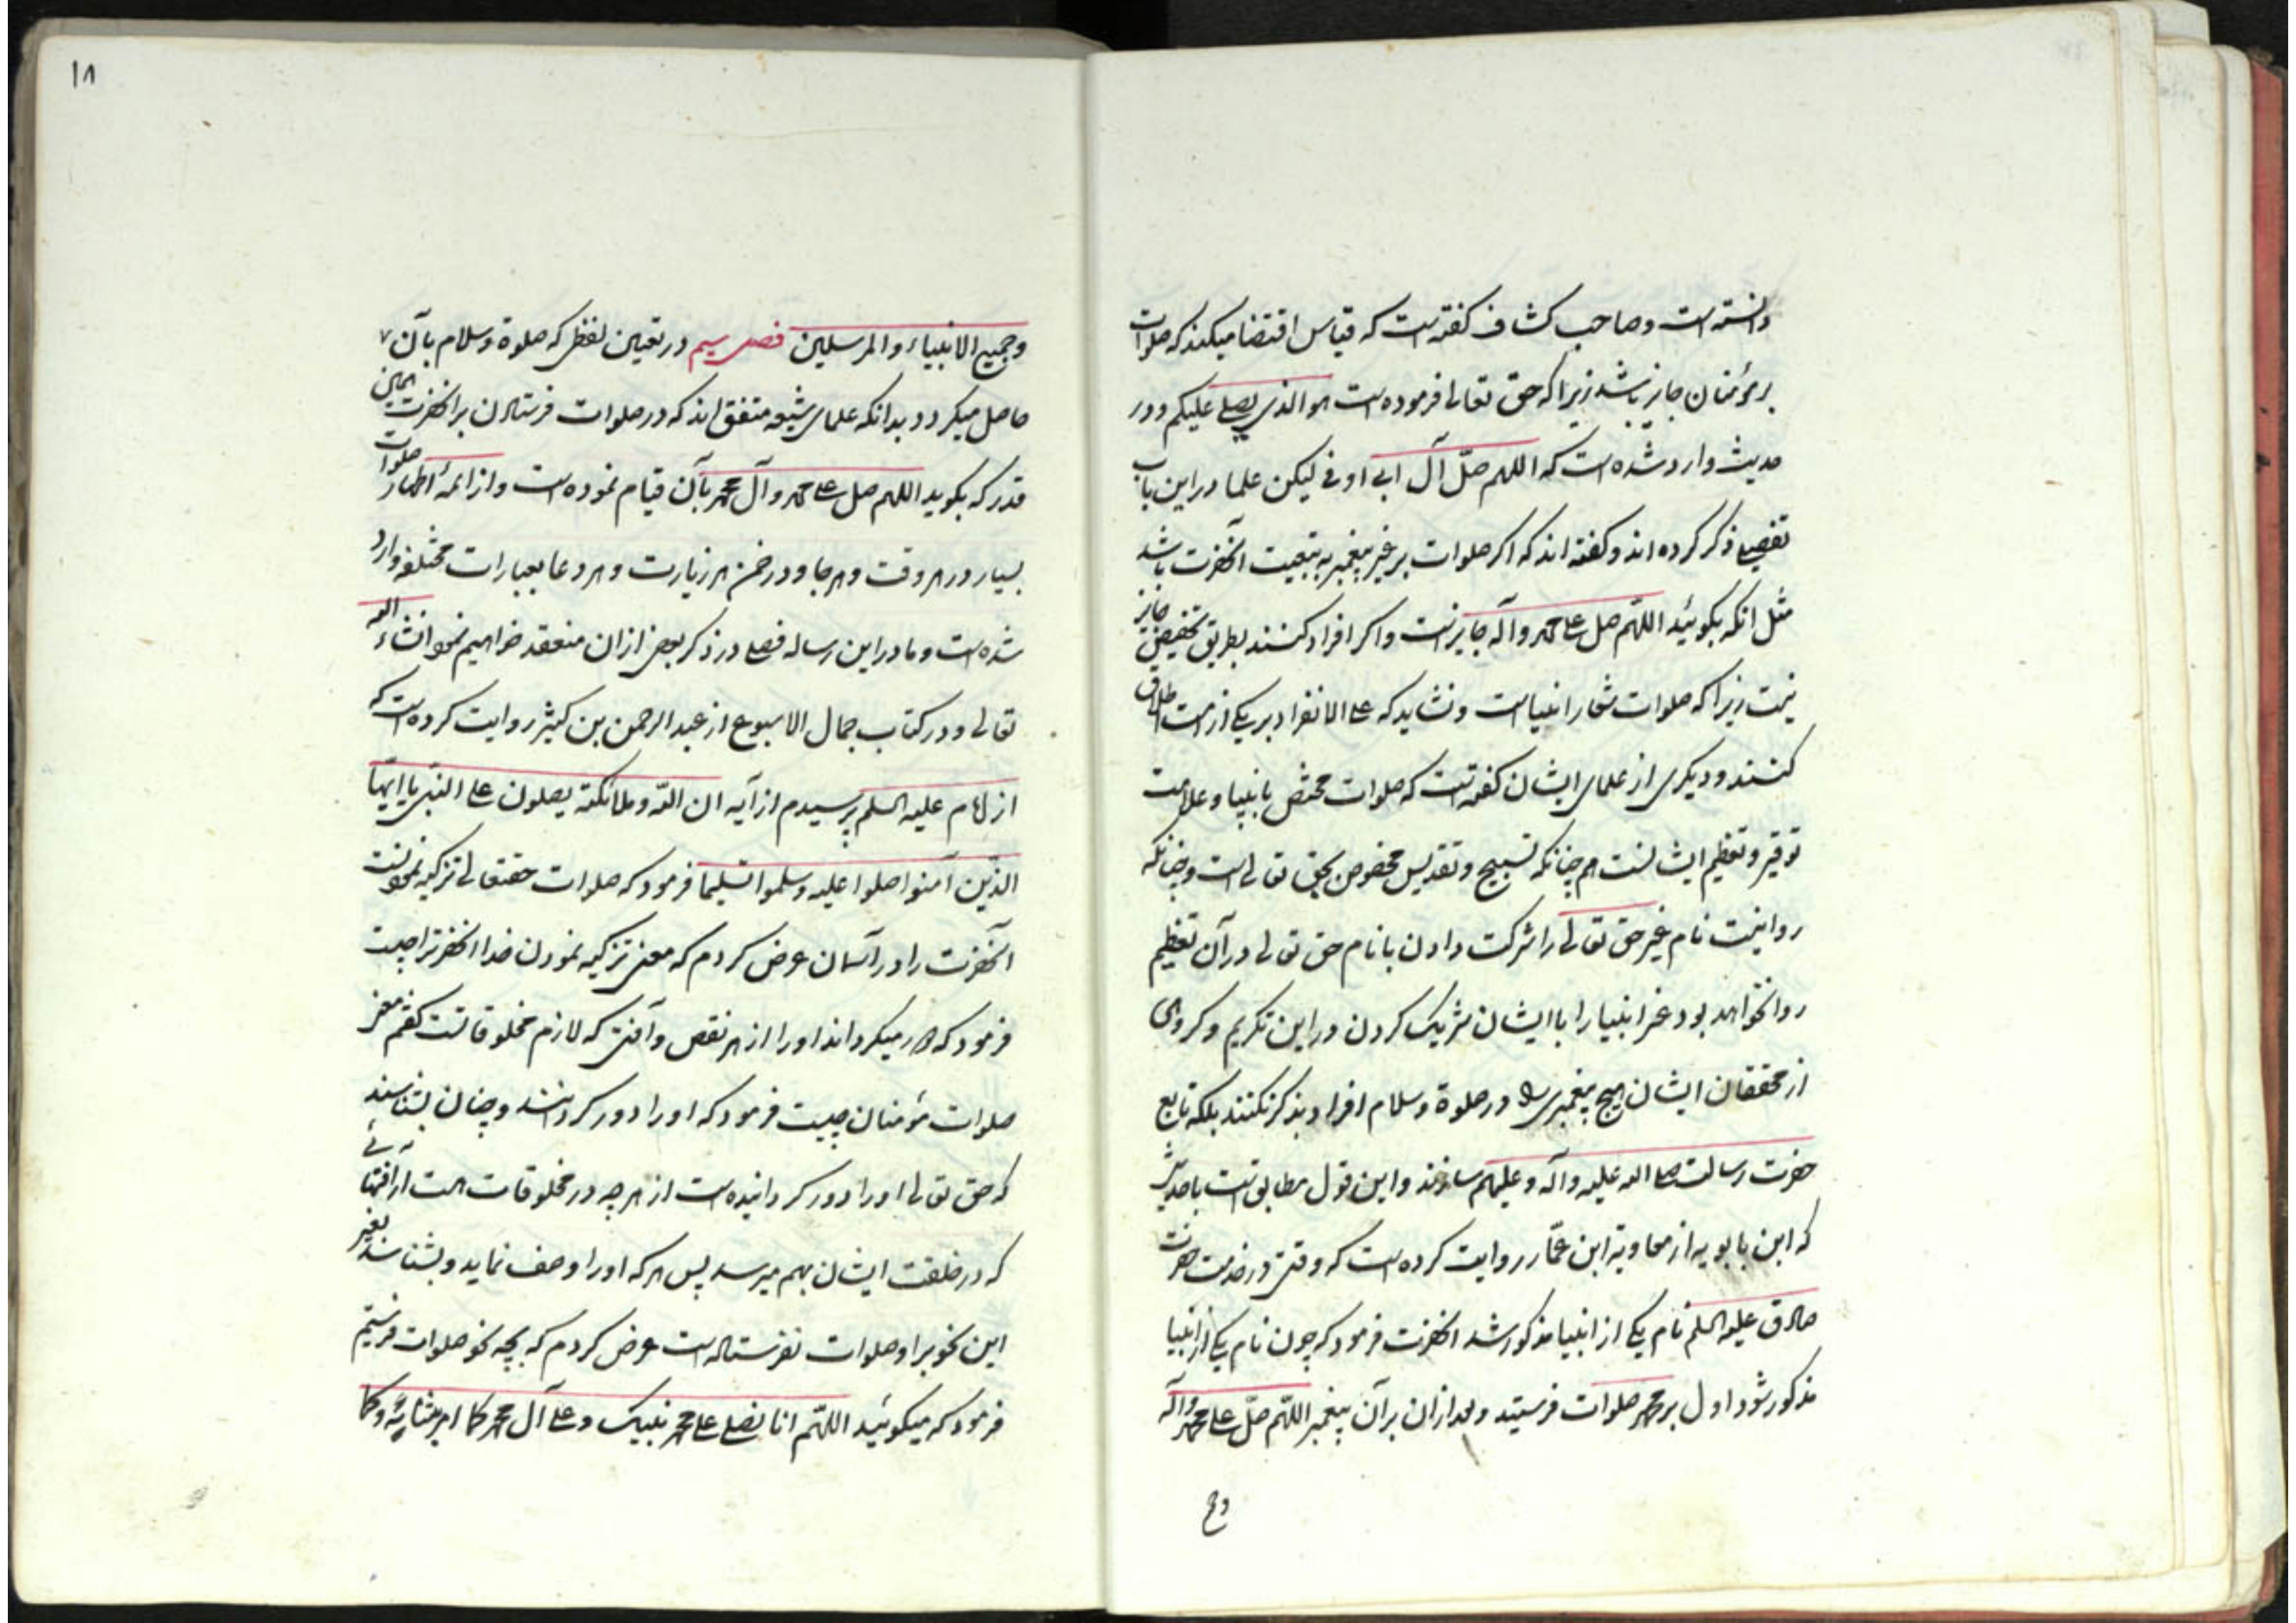 دانسته است و صاحب کشاف گفته است که قیاس اقتضا میکند که صلوات
بر مؤمنان جایز باشد زیرا که حق تعالی فرموده است هو الذی یصلی علیکم و در
حدیث وارد شده است که اللهم صلّ آل ابی اوفی لیکن علما در این باب
تفصیلی ذکر کرده اند و گفته اند که اگر صلوات بر غیر پیغمبر به تبعیت آنحضرت باشد
مثل انکه بگوئید اللهّم صل علی محمد و آله جایز است و اگر افراد کنند بطریق تخصیص جایز
نیست زیرا که صلوات شعار انبیا است و نشاید که علی الانفراد بر یکی از امت اطلاق
کنند و دیگری از علمای ایشان گفته است که صلوات مختص بانبیا و علامت
توقیر و تعظیم ایشانست هم چنانکه تسبیح و تقدیس مخصوص بحق تعالی است و چنانکه
روا نیست نام غیر حق تعالی را شرکت دادن با نام حق تعالی در آن تعظیم
روا نخواهد بود غیر انبیا را با ایشان شریک کردن در این تکریم و گروهی
از محققان ایشان هیچ پیغمبری را در صلوة و سلام افراد بذکر نکنند بلکه تابع
حضرت رسالت صلی الله علیه و آله و علیهم سازند و این قول مطابق است با حدیثی
که ابن بابویه از معاویة ابن عمّار روایت کرده است که وقتی در خدمت حضرت
صادق علیه السلم نام یکی از انبیا مذکور شد انحضرت فرمود که چون نام یکی از انبیا
مذکور شود اول بر محمد صلوات فرستید و بعد از ان بر آن پیغمبر اللهّم صلّ علی محمد و آله
و ج
۱۸
و جمیع الانبیاء و المرسلین فصل سیم در تعیین لفظی که صلوة و سلام بآن
حاصل میگردد بدانکه علمای شیعه متفق اند که در صلوات فرستادن بر انحضرت همین
قدر که بگوید اللهم صل علی محمد و آل محمد بآن قیام نموده است و از ائمهٔ اطهار صلوات
بسیار در هر وقت و هر جا و در ضمن هر زیارت و هر دعا بعبارات مختلفه وارد
شده است و ما در این رساله فصلی در ذکر بعضی از ان منعقد خواهیم نمود انشاء الله
تعالی و در کتاب جمال الاسبوع از عبد الرحمن بن کثیر روایت کرده است که
از امام علیه السلم پرسیدم از آیه ان اللّه و ملائکته یصلون علی النبّی یا ایّها
الذّین آمنوا صلوا علیه و سلموا تسلیما فرمود که صلوات حقتعالی تزکیه نمودنست
آنحضرت را در آسمان عرض کردم که معنی تزکیه نمودن خدا انحضرترا چیست
فرمود که میگرداند او را از هر نقص و آفتی که لازم مخلوقاتست گفتم معنی
صلوات مؤمنان چیست فرمود که او را دور گردانند و چنان بشناسند
که حق تعالی او را دور گردانیده است از هر چه در مخلوقات است از آفتهائی
که در خلقت ایشان بهم میرسد پس هر که او را وصف نماید و بشناسد بغیر
این نحو بر او صلوات نفرستاده است عرض کردم که بچه نحو صلوات فرستیم
فرمود که میگوئید اللهّم انا نصلی علی محمد نبیک و علی آل محمد کما امرتنا به و کما